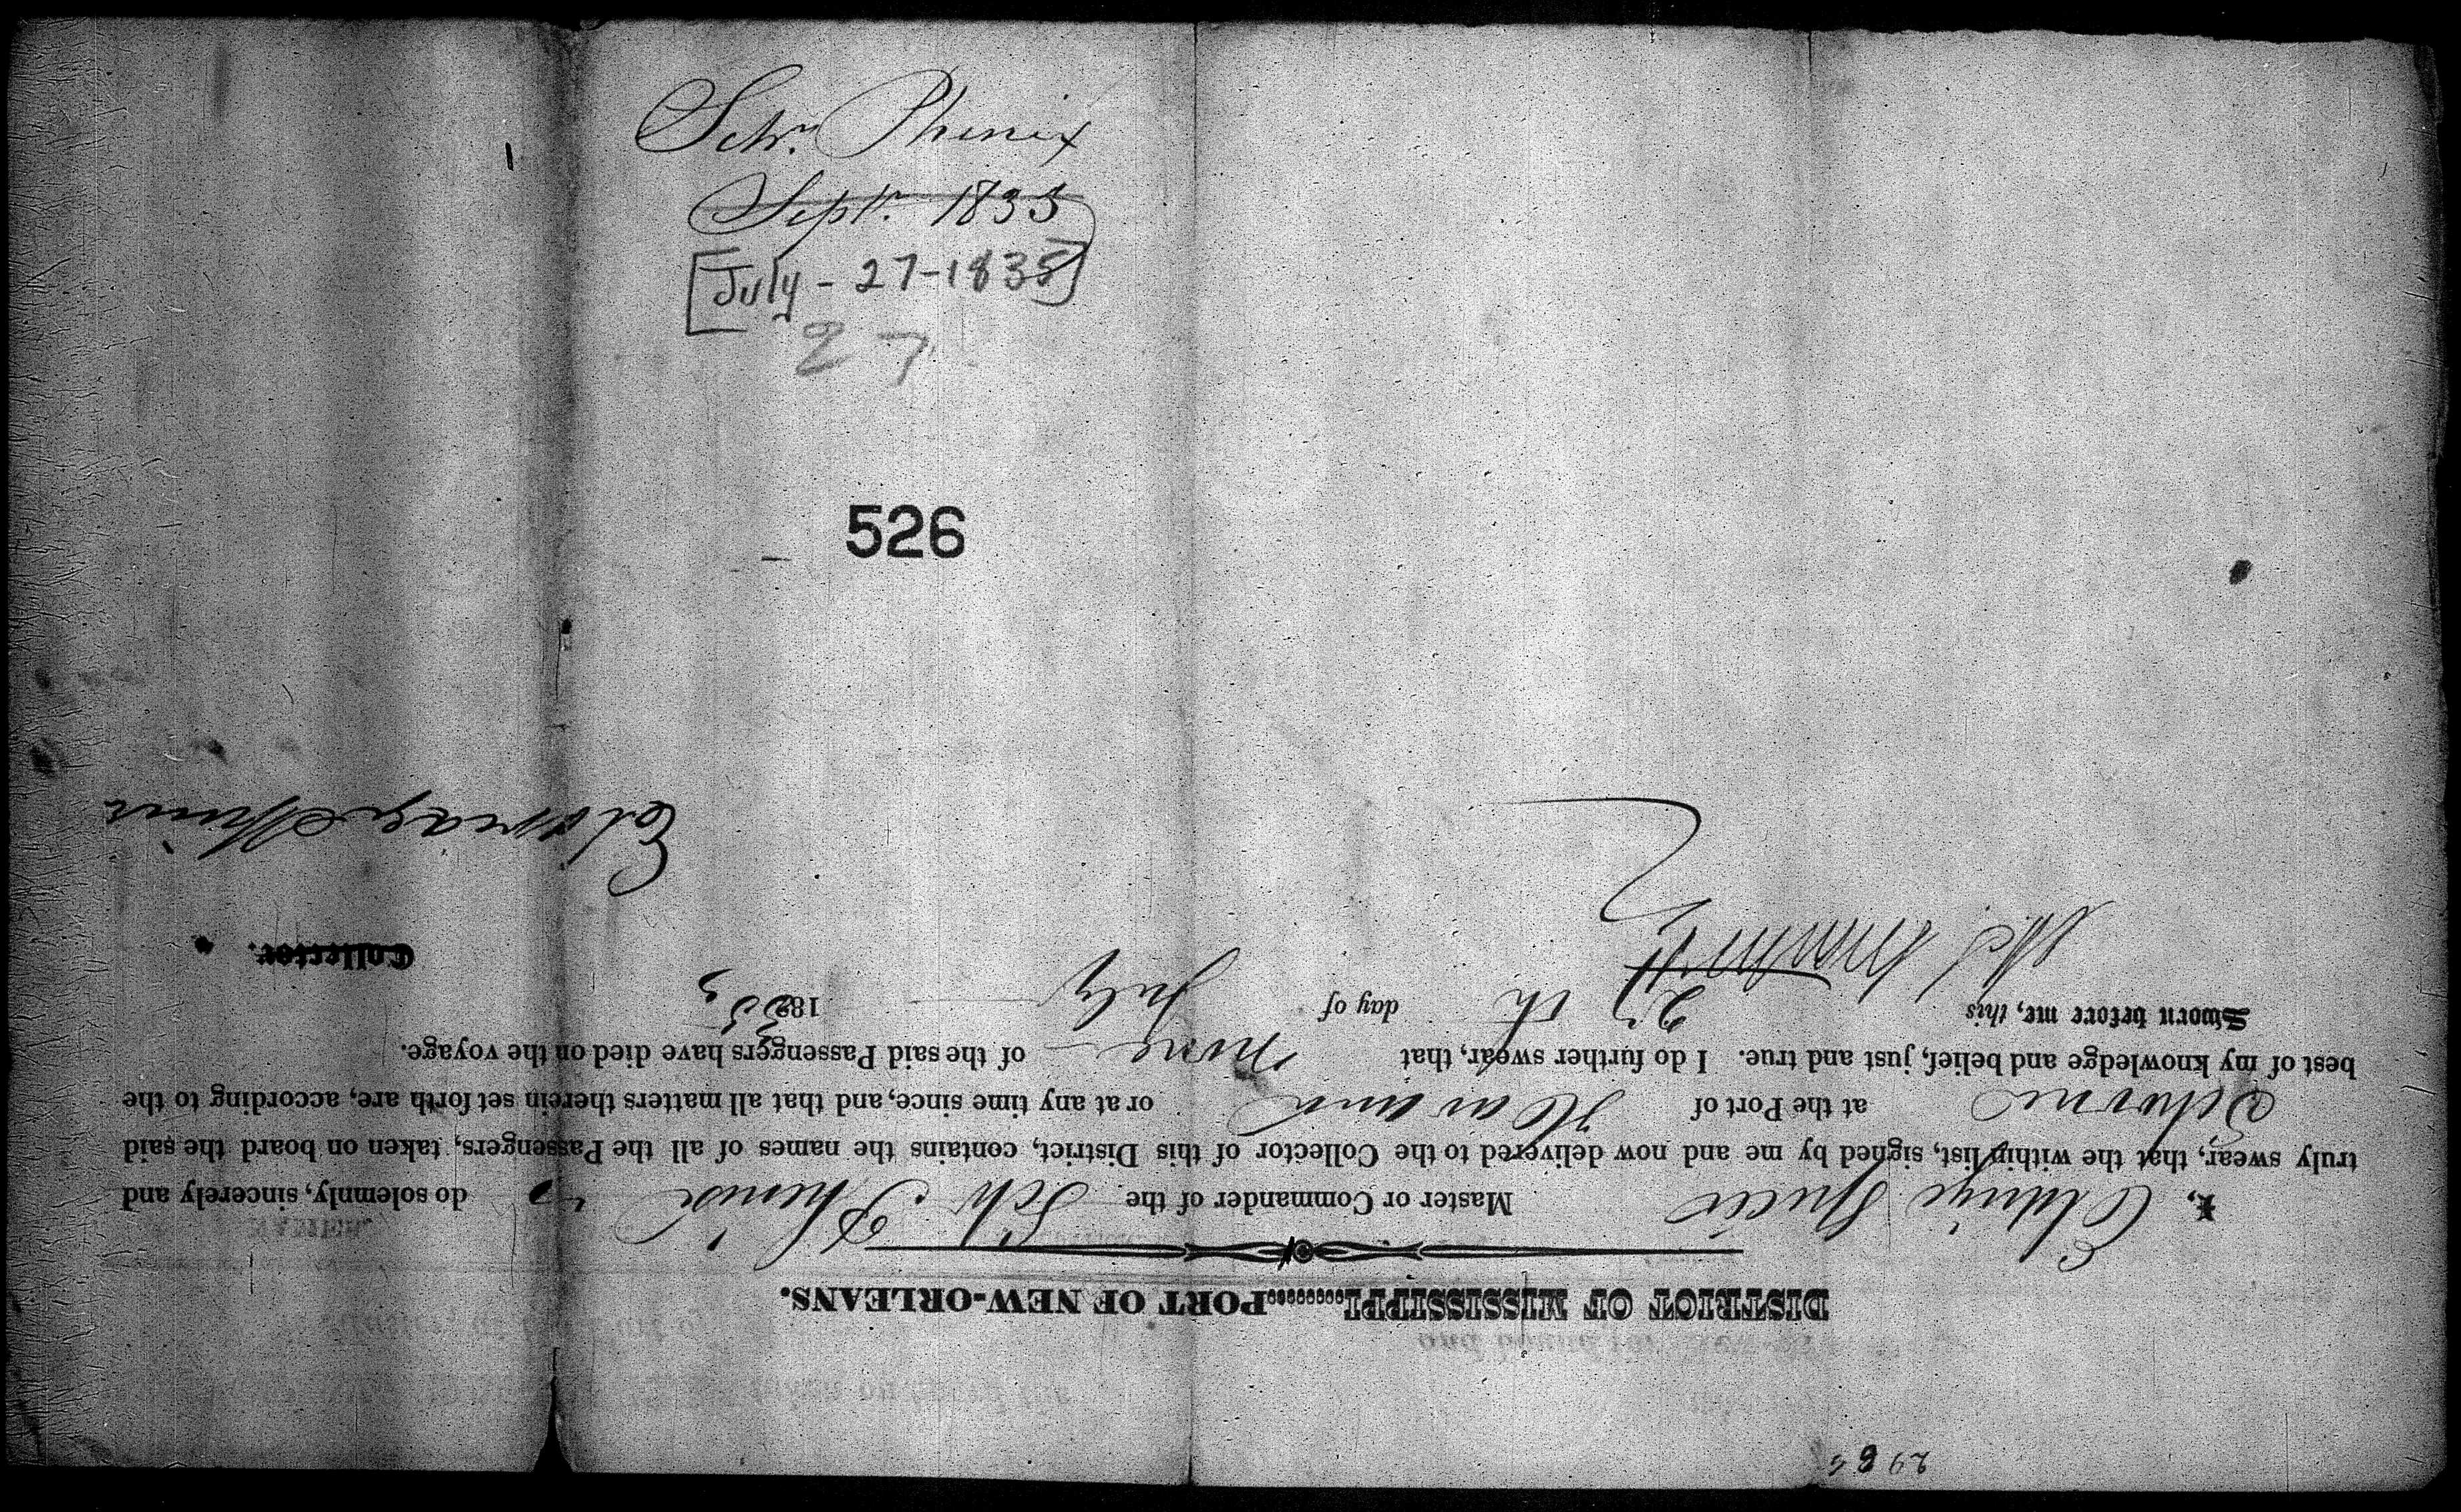 Schr. Phenix
Septr. 1835
[July - 27-1835]
27
526
DISTRICT OF MISSISSIPPI,........PORT OF NEW-ORLEANS.
I, Master or Commander of the Schr Phenix do solemnly, sincerely and
truly swear, that the within list, signed by me and now delivered to the Collector of this District, contains the names of all the Passengers, taken on board the said
at the Port of Havana or at any time since, and that all matters therein set forth are, according to the
best of my knowledge and belief, just and true. I do further swear, that none of the said Passengers have died on the voyage.
Sworn before me, this 27th day of July 1835
Collector.